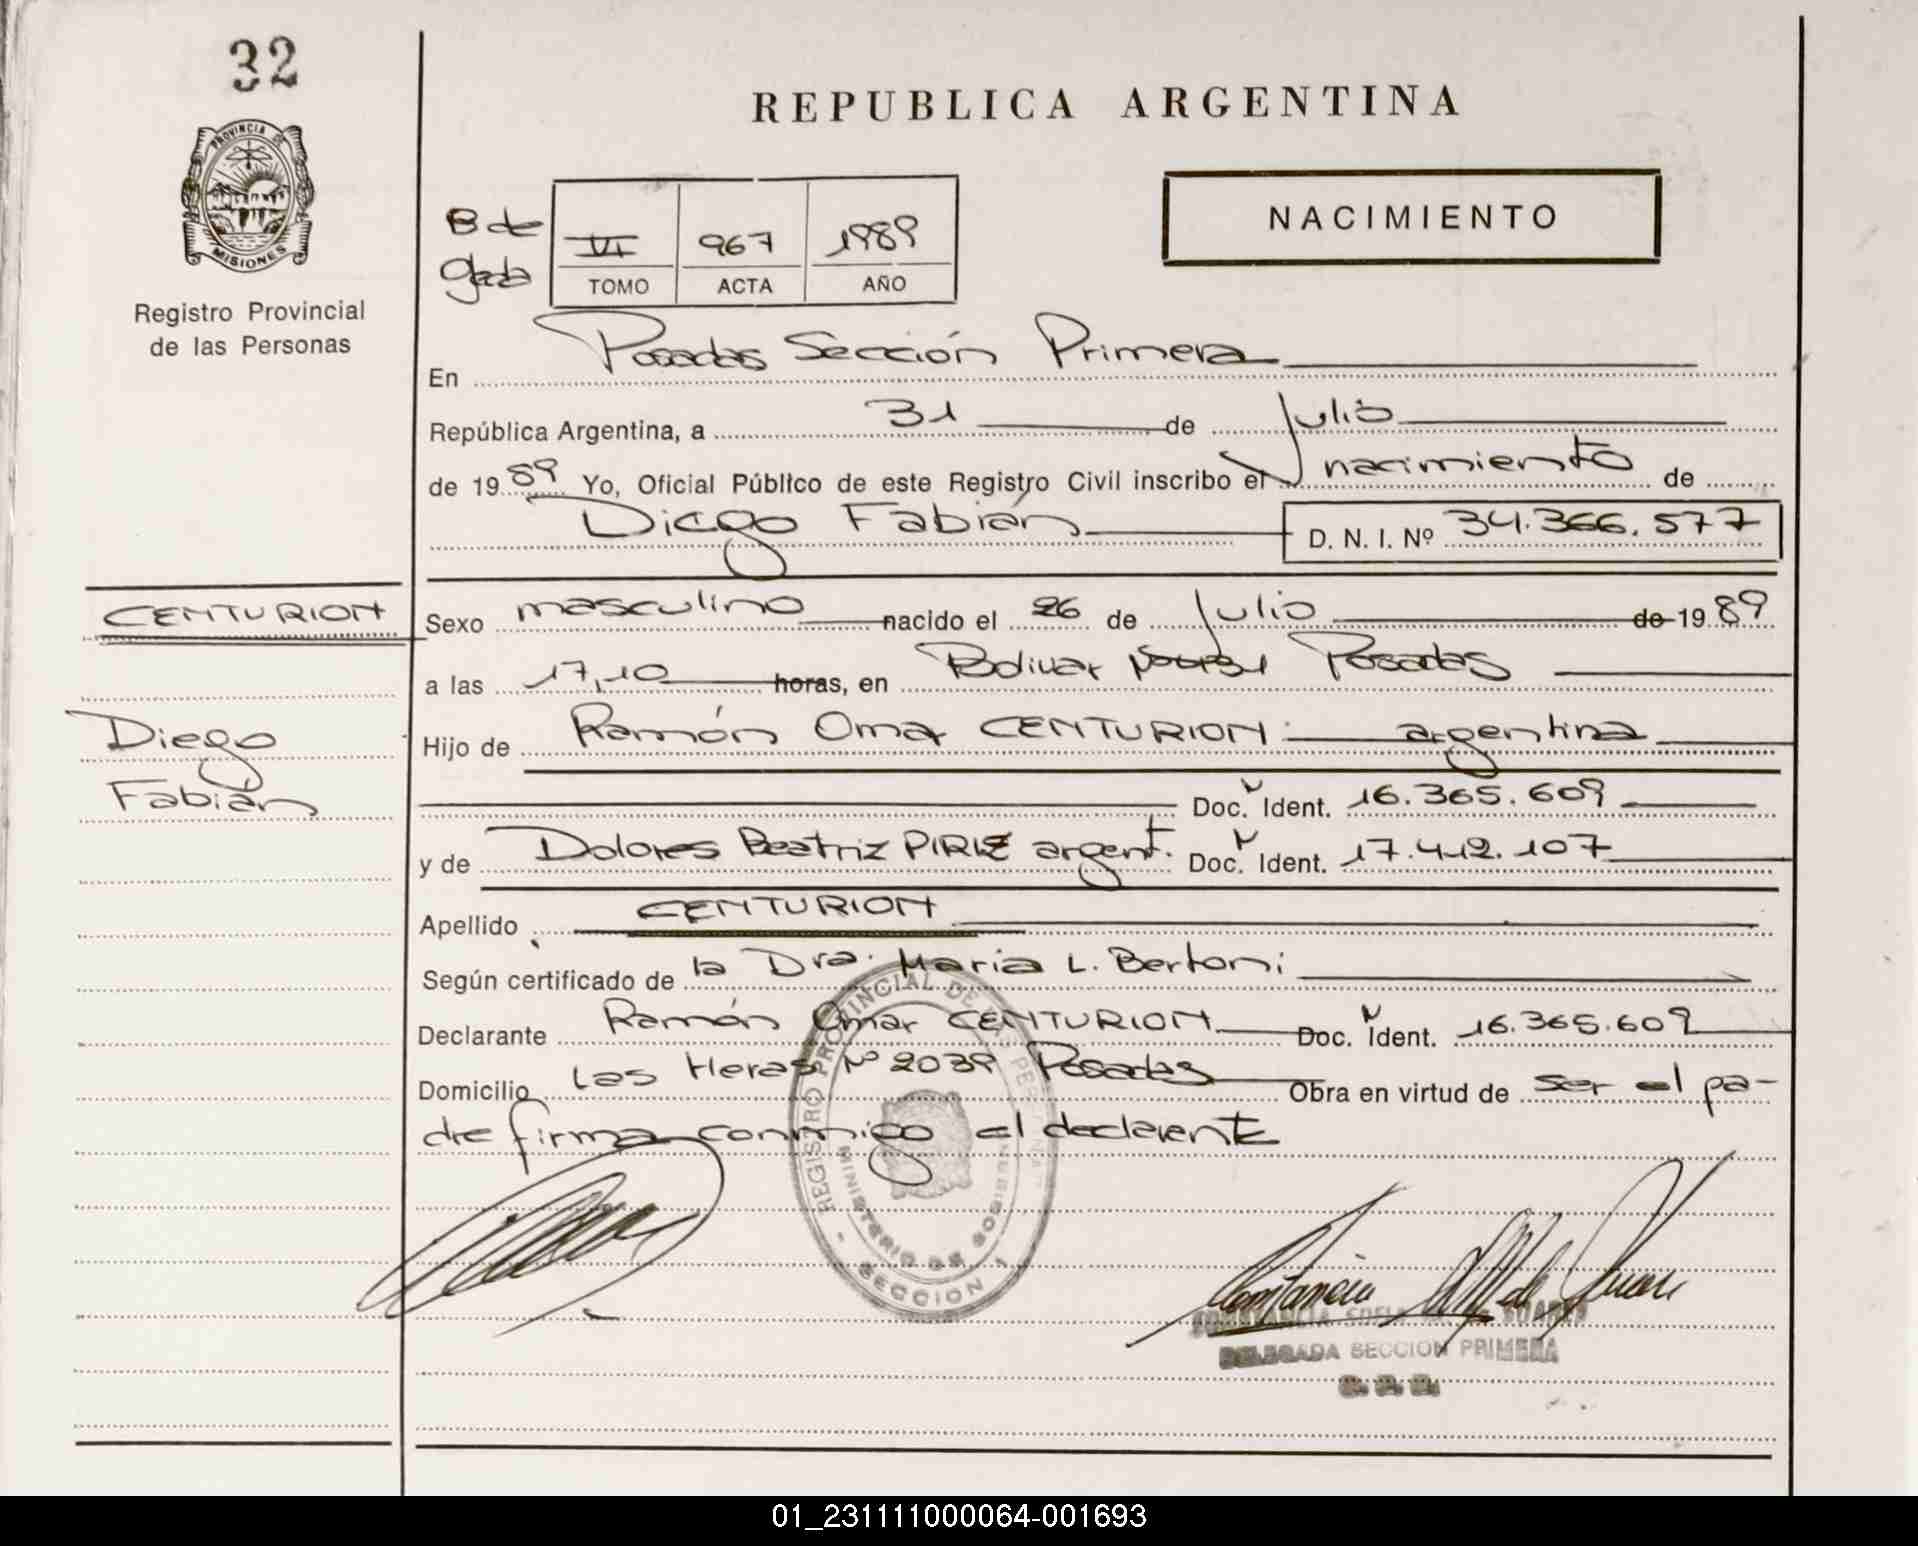 32
REPUBLICA ARGENTINA
PROVINCIA DE
MISIONES
Registro Provincial
de las Personas
NACIMIENTO
VI 967 1989
TOMO ACTA AÑO
En Posadas Sección Primera
República Argentina, a 31 de Julio
de 1989 Yo, Oficial Público de este Registro Civil inscribo el nacimiento de
Diego Fabián D. N. I. Nº 34.366.577
CENTURION
Diego
Fabián
Sexo masculino nacido el 26 de Julio de 1989
a las 17,10 horas, en Bolivar Posadas
Hijo de Ramón Omar CENTURION argentina
Doc. Ident. 16.365.609
y de Dolores Beatriz PIRIZ argent. Doc. Ident. 17.412.107
Apellido CENTURION
Según certificado de la Dra. Maria L. Bertoni
Declarante Ramón Omar CENTURION Doc. Ident. 16.365.609
Domicilio Las Heras Nº 2039 Posadas Obra en virtud de ser el pa-
dre firma conmigo el declarente
REGISTRO PROVINCIAL DE LAS PERSONAS
MINISTERIO DE GOBIERNO
- SECCION 1
DELEGADA SECCION PRIMERA
01_231111000064-001693